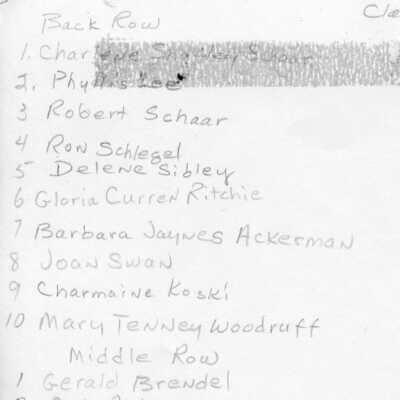 Cla
Back Row
1. Charlene
2. Phyllis Lee
3 Robert Schaar
4 Ron Schlegel
5 Delene Sibley
6 Gloria Curren Ritchie
7 Barbara Jaynes Ackerman
8 Joan Swan
9 Charmaine Koski
10 Mary Tenney Woodruff
Middle Row
1 Gerald Brendel